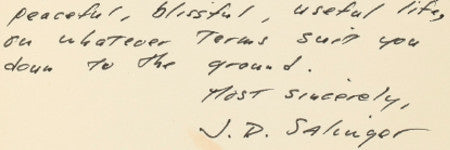 peaceful, blissful, useful life,
on whatever terms suit you
down to the ground.
Most sincerely,
J. D. Salinger